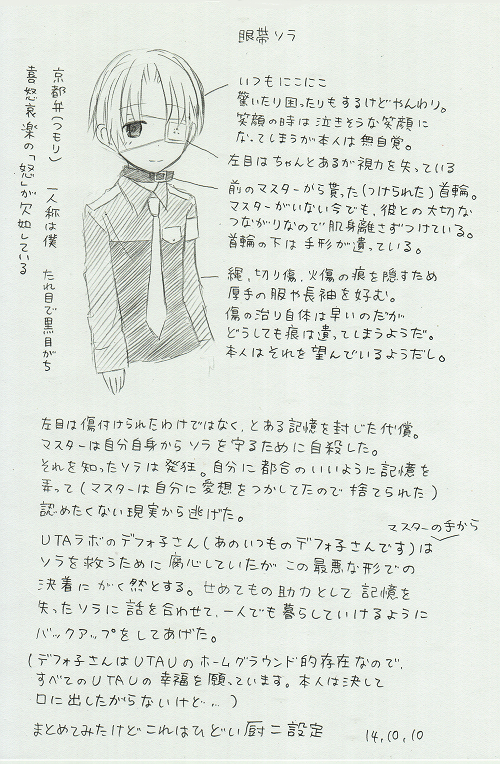 眼帯ソラ
いつもにこにこ
驚いたり困ったりもするけどやんわり。
笑顔の時は泣きそうな笑顔に
なってしまうが本人は無自覚。
左目はちゃんとあるが視力を失っている
前のマスターから貰った(つけられた)首輪。
マスターがいない今でも、彼との大切な
つながりなので肌身離さずつけている。
首輪の下は手形が遺っている。
縄、切り傷、火傷の痕を隠すため
厚手の服や長袖を好む。
傷の治り自体は早いのだが
どうしても痕は遺ってしまうようだ。
本人はそれを望んでいるようだし。
京都弁(つもり) 一人称は僕 たれ目で黒目がち
喜怒哀楽の「怒」が欠如している
左目は傷付けられたわけではなく、とある記憶を封じた代償。
マスターは自分自身からソラを守るために自殺した。
それを知ったソラは発狂。自分に都合のいいように記憶を
弄って(マスターは自分に愛想をつかしてたので捨てられた)
認めたくない現実から逃げた。
マスターの手から
UTAラボのデフォ子さん(あのいつものデフォ子さんです)は
ソラを救うために腐心していたがこの最悪な形での
決着にがく然とする。せめてもの助力として記憶を
失ったソラに話を合わせて、一人でも暮らしていけるように
バックアップをしてあげた。
(デフォ子さんはUTAUのホームグラウンド的存在なので、
すべてのUTAUの幸福を願っています。本人は決して
口に出したがらないけど…)
まとめてみたけどこれはひどい厨二設定
14,10,10